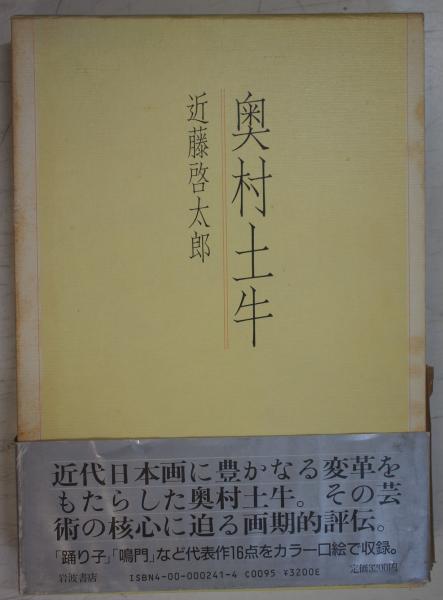 奥村土牛
近藤啓太郎
近代日本画に豊かなる変革を
もたらした奥村土牛。その芸
術の核心に迫る画期的評伝。
「踊り子」「鳴門」など代表作16点をカラー口絵で収録。
岩波書店 ISBN4-00-000241-4 C0095 ¥3200E 定価3200円